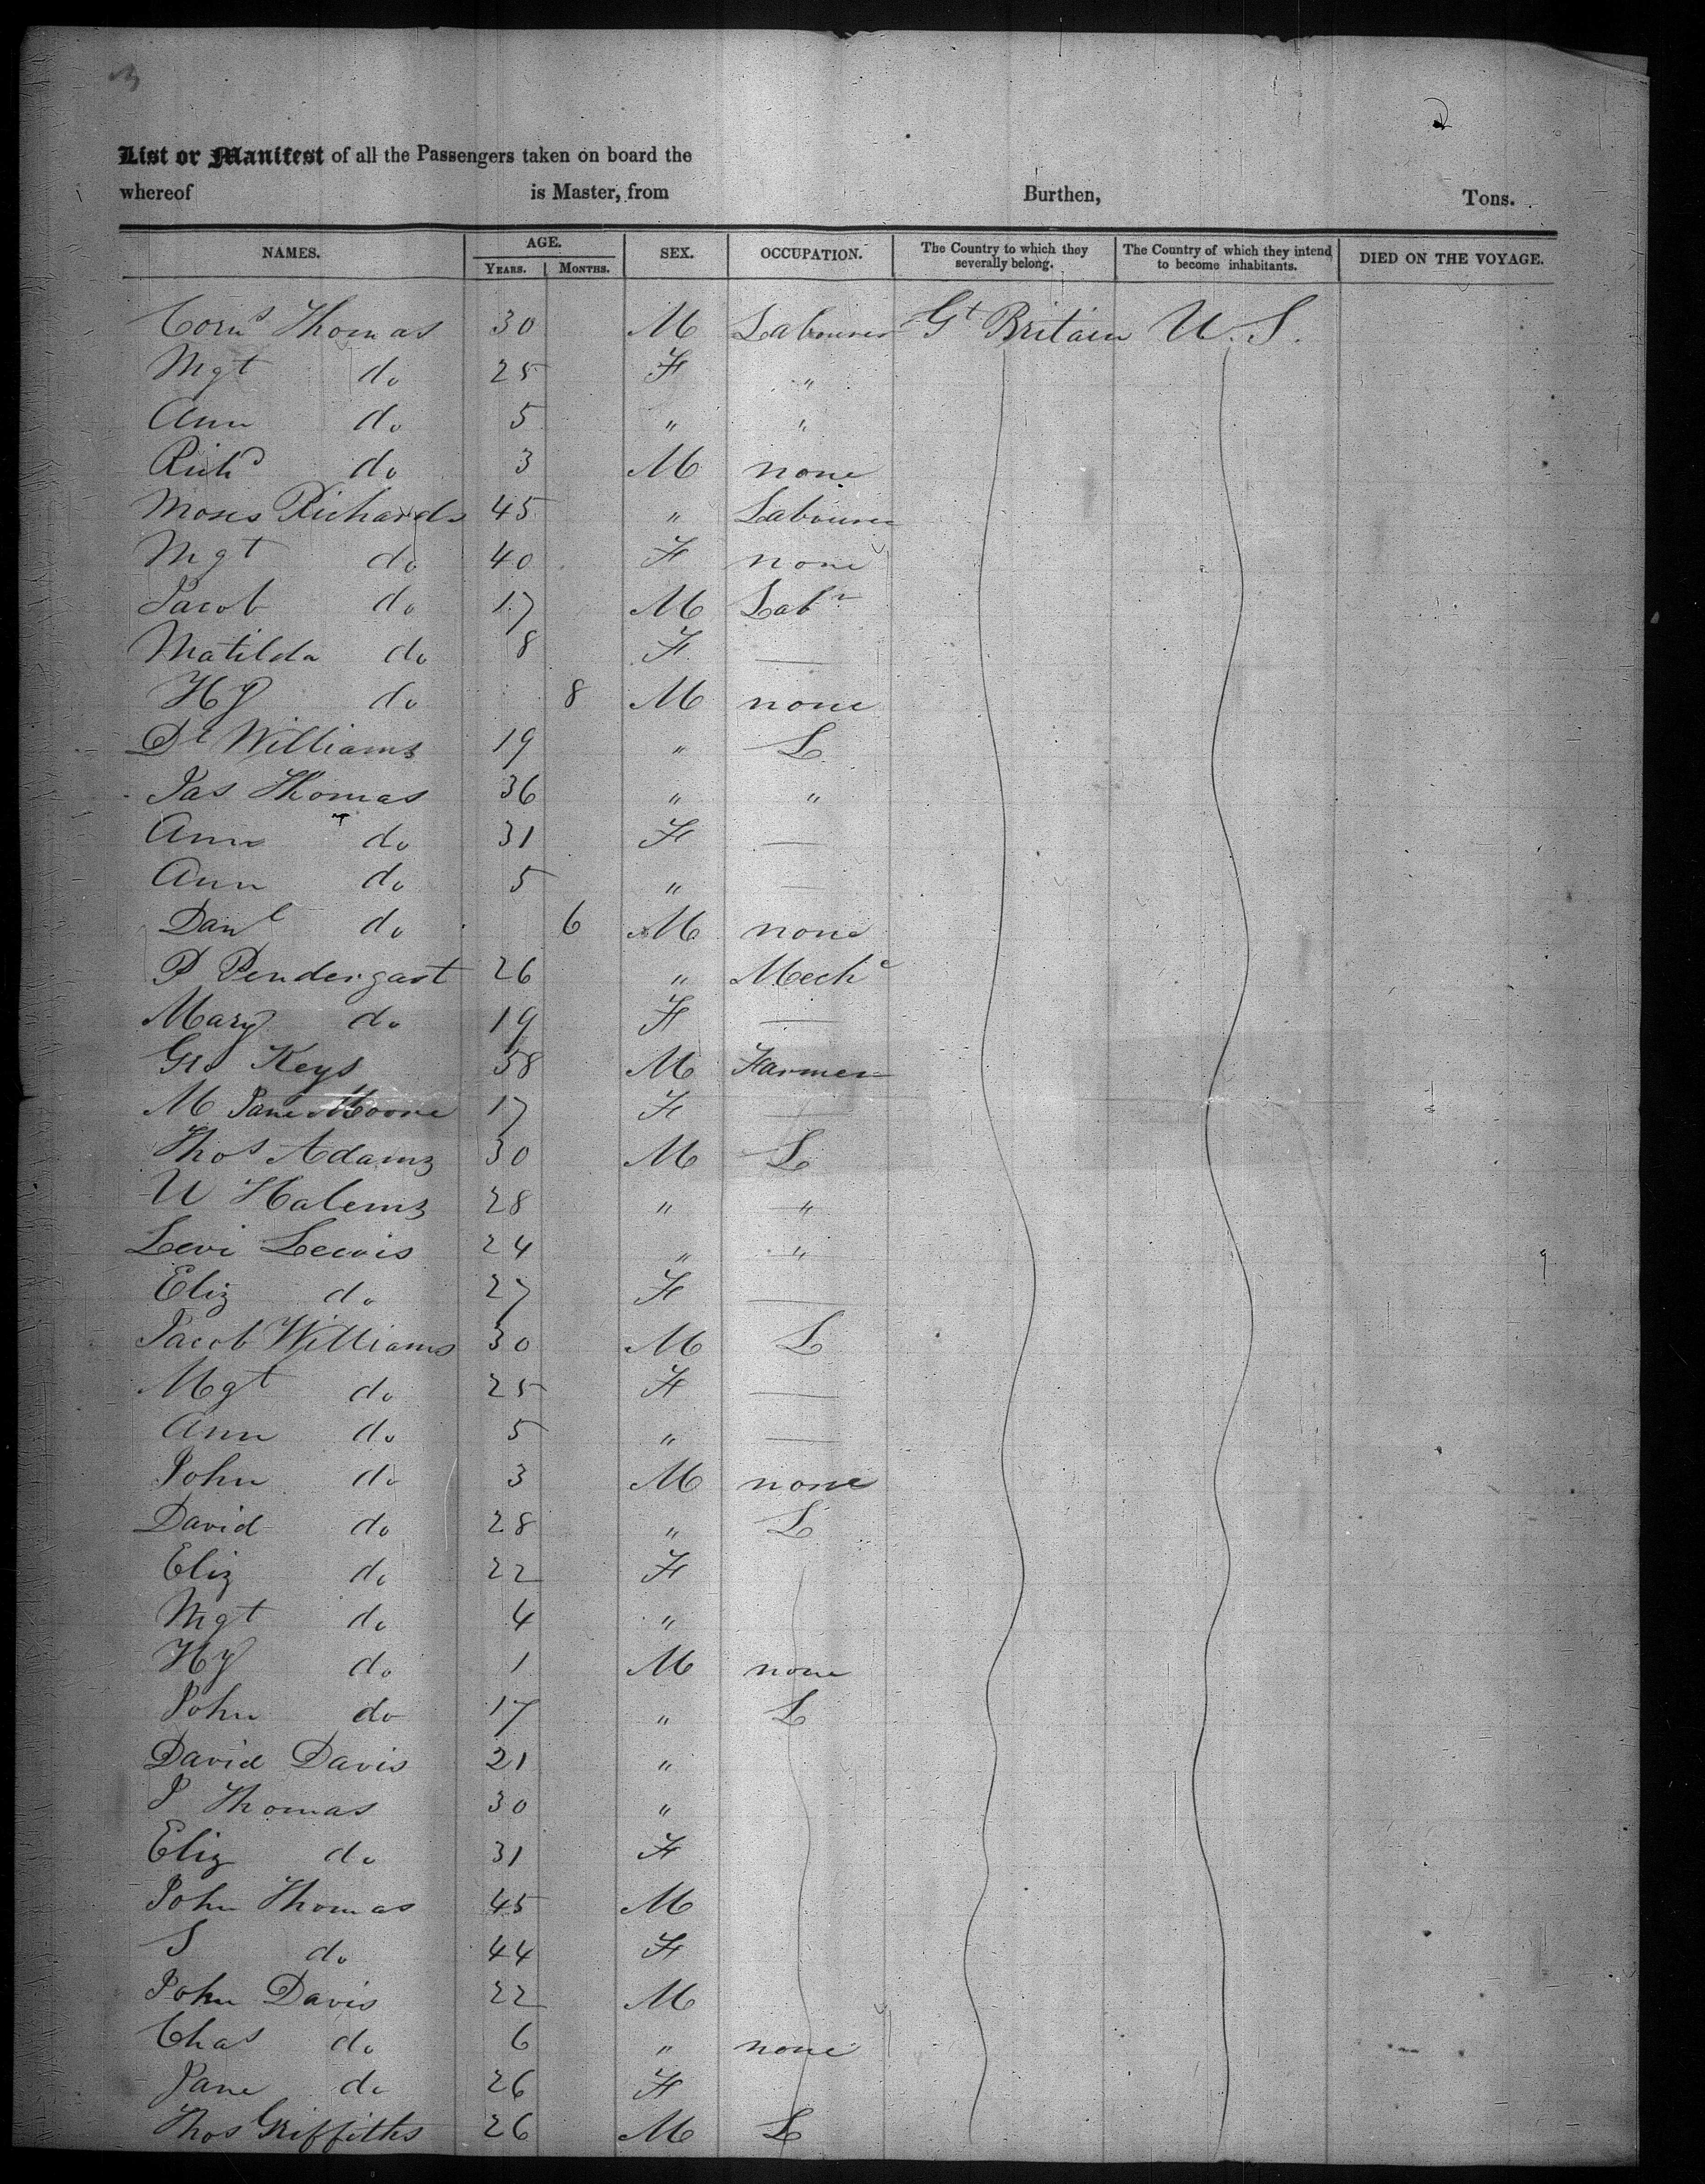 2
List or Manifest of all the Passengers taken on board the
whereof is Master, from Burthen, Tons.
NAMES. AGE. SEX. OCCUPATION. The Country to which they severally belong. The Country of which they intend to become inhabitants. DIED ON THE VOYAGE.
YEARS. MONTHS.
Corns Thomas 30 M Labourer Gt Britain U.S.
Mgt do 25 F "
Ann do 5 " "
Richd do 3 M none
Moses Richards 45 " Labourer
Mgt do 40 F none
Jacob do 17 M Labr
Matilda do 8 F —
Hy do 8 M none
Dl Williams 19 " L
Jas Thomas 36 " "
Ann do 31 F —
Ann do 5 " —
Danl do 6 M none
P Pendergast 26 " Mechc
Mary do 19 F —
Geo Keys 58 M Farmer
M Jane Moore 17 F —
Thos Adams 30 M L
W Halems 28 " "
Levi Lewis 24 " "
Eliz do 27 F —
Jacob Williams 30 M L
Mgt do 25 F —
Ann do 5 " —
John do 3 M none
David do 28 " L
Eliz do 22 F
Mgt do 4 "
Hy do 1 M none
John do 17 " L
David Davis 21 "
J Thomas 30 "
Eliz do 31 F
John Thomas 45 M
S do 44 F
John Davis 22 M
Chas do 6 " none
Jane do 26 F
Thos Griffiths 26 M L